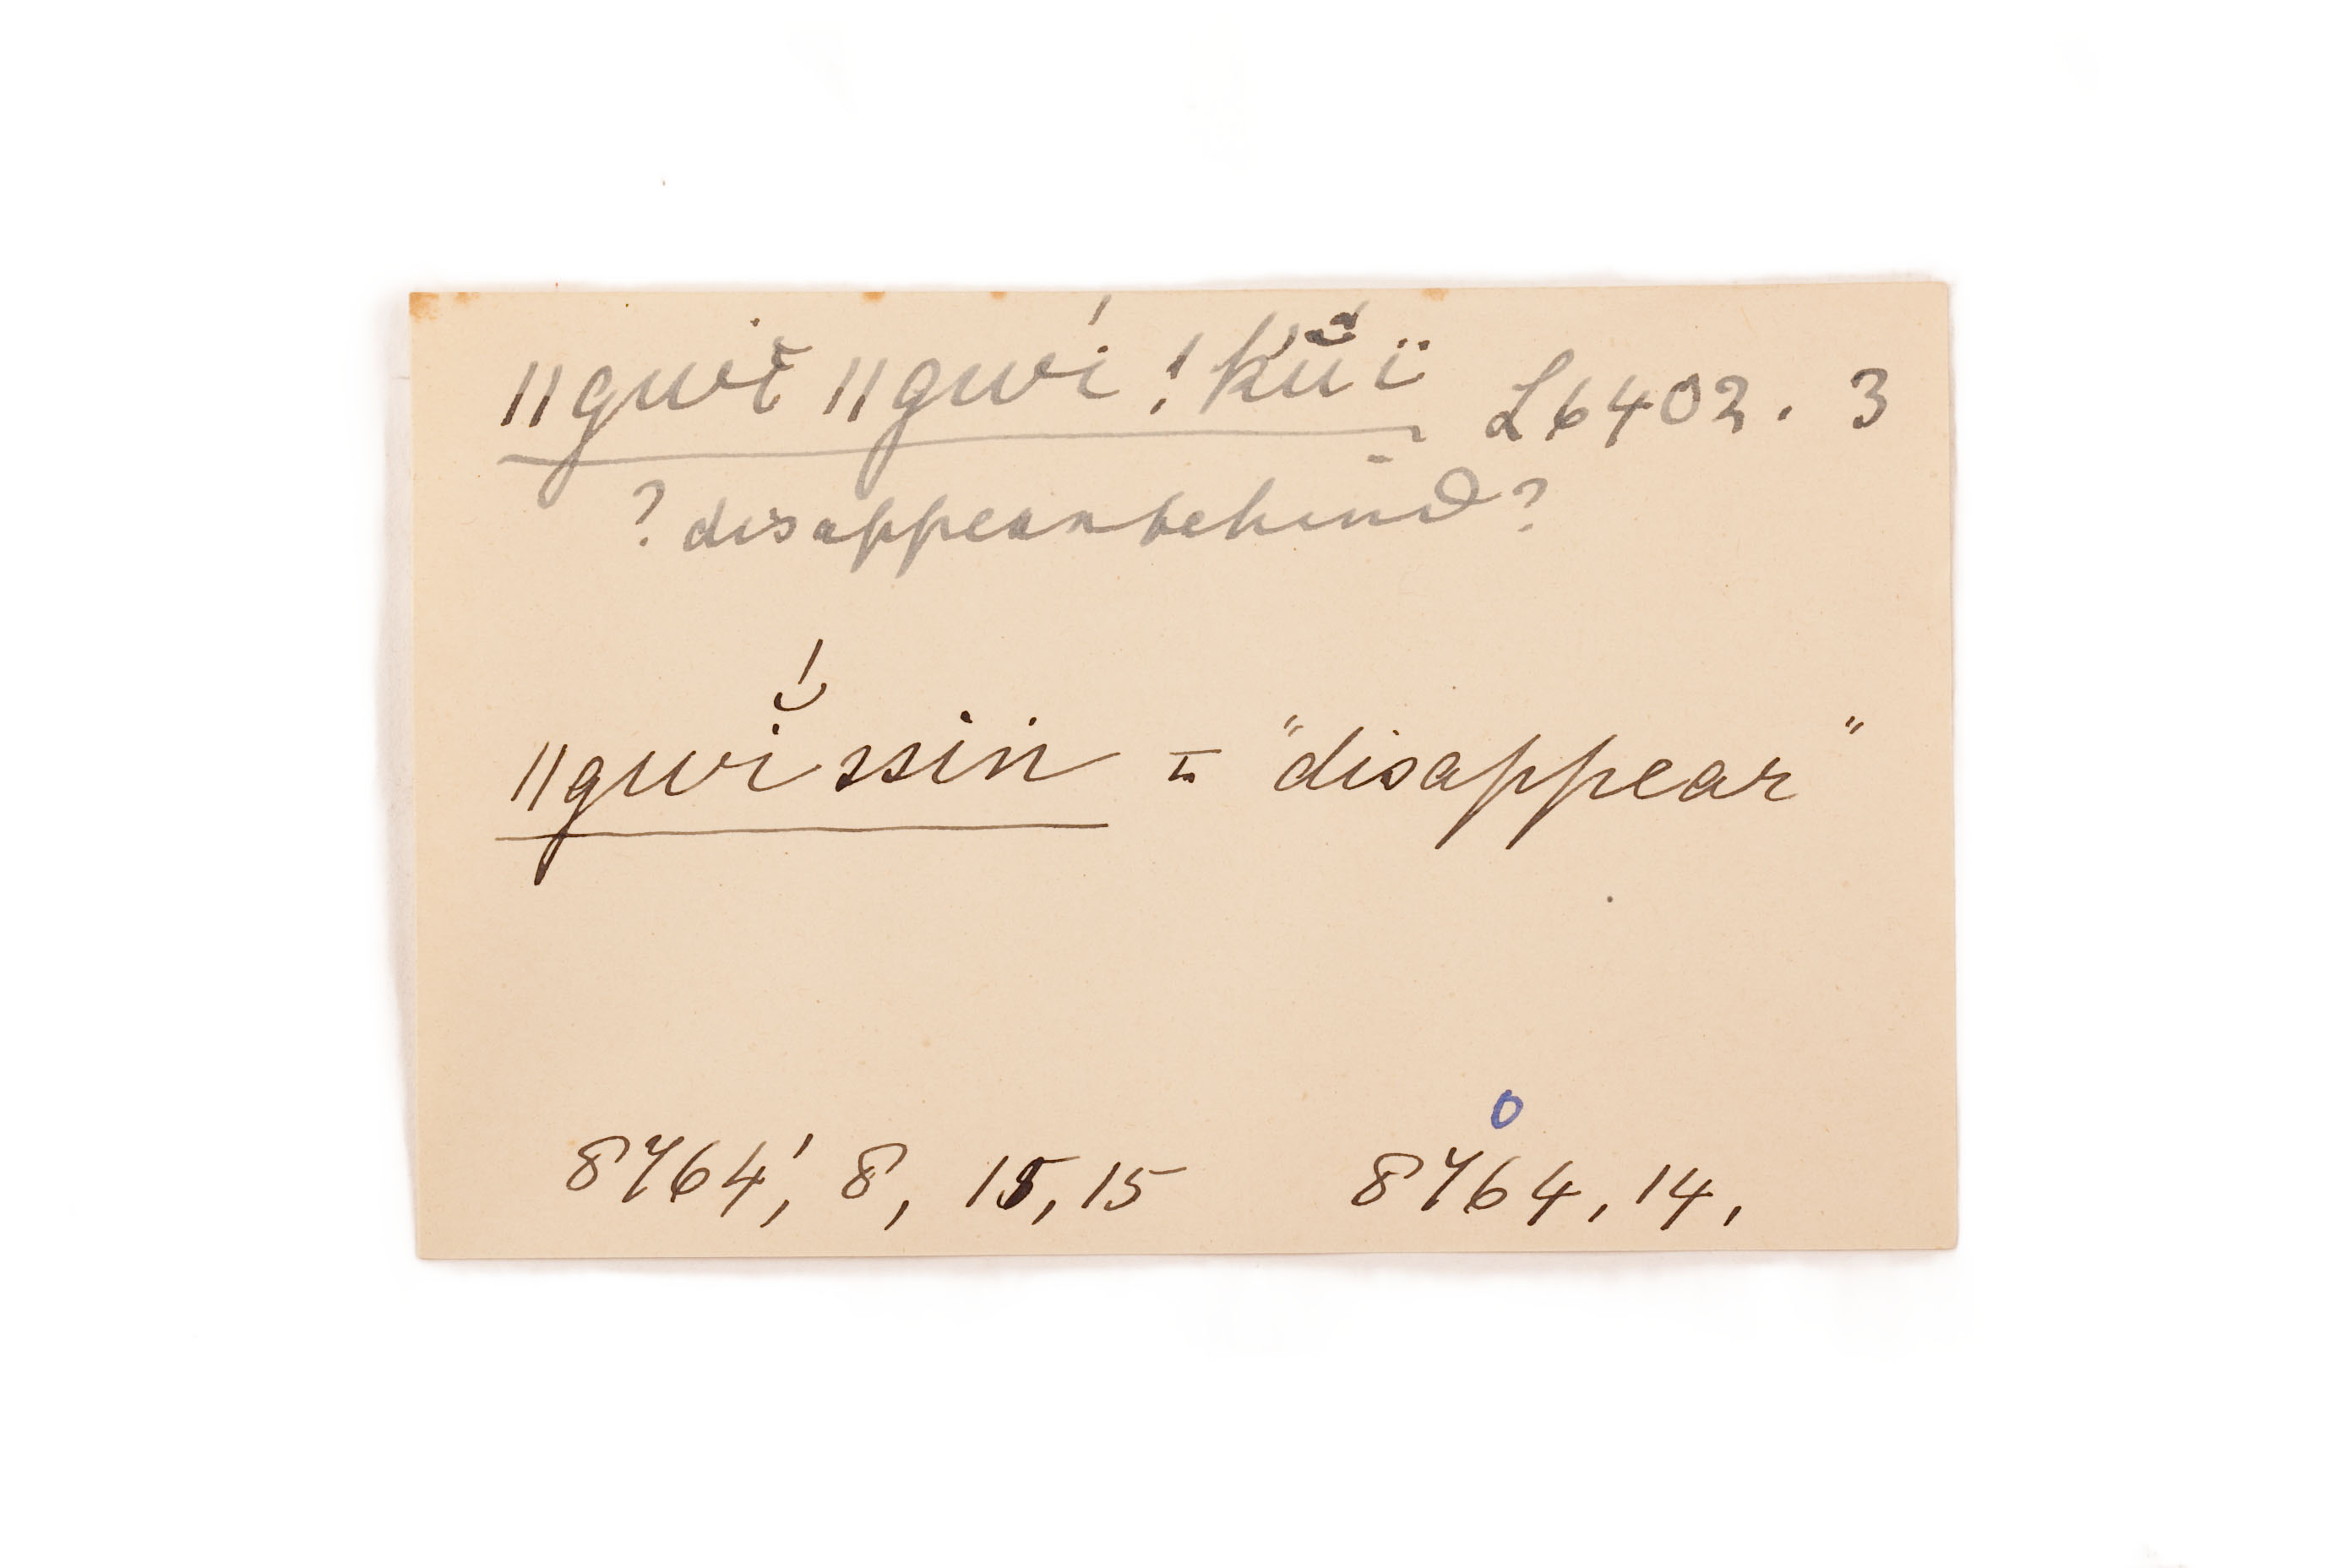 ǁgwĭ ǁgwí ǃkŭ́ï L6402. 3
? disappear behind ?
ǁgwĭ́ ssin = "disappear"
8764', 8, 15, 15 8764, 14,